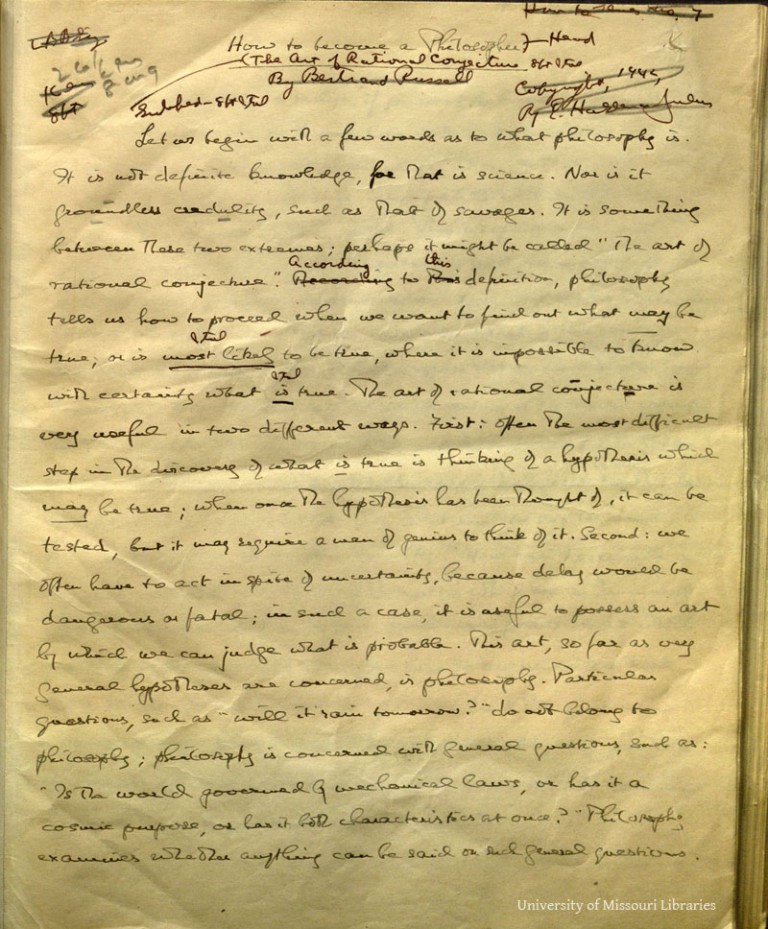 How to become a Philosopher
(The Art of Rational Conjecture 8pt Ital
By Bertrand Russell
Copyright, 1942,
Let us begin with a few words as to what philosophy is.
It is not definite knowledge, for that is science. Nor is it
groundless credulity, such as that of savages. It is something
between these two extremes; perhaps it might be called "The art of
rational conjecture". According to this definition, philosophy
tells us how to proceed when we want to find out what may be
true, or is most likely to be true, where it is impossible to know
with certainty what is true. The art of rational conjecture is
very useful in two different ways. First: often the most difficult
step in the discovery of what is true is thinking of a hypothesis which
may be true; when once the hypothesis has been thought of, it can be
tested, but it may require a man of genius to think of it. Second: we
often have to act in spite of uncertainty, because delay would be
dangerous or fatal; in such a case, it is useful to possess an art
by which we can judge what is probable. This art, so far as very
general hypotheses are concerned, is philosophy. Particular
questions, such as "will it rain tomorrow?" do not belong to
philosophy; philosophy is concerned with general questions, such as:
"Is the world governed by mechanical laws, or has it a
cosmic purpose, or has it both characteristics at once?" Philosophy
examines whether anything can be said on such general questions.
University of Missouri Libraries